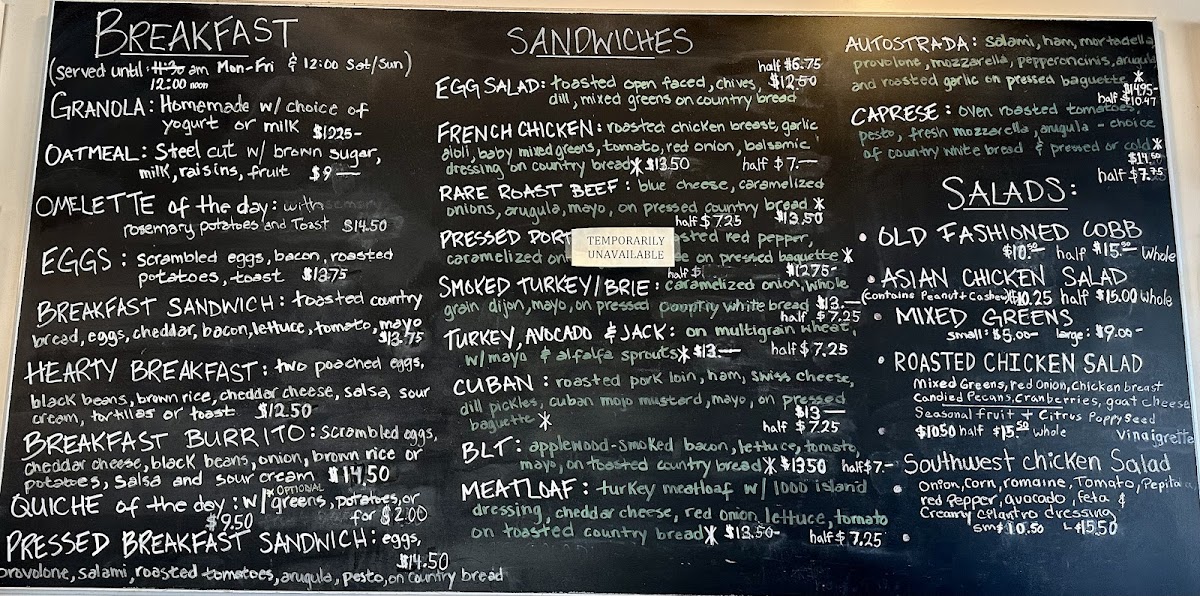 BREAKFAST
(served until 11:30 am Mon-Fri & 12:00 Sat/Sun)
12:00 noon
GRANOLA: Homemade w/ choice of
yogurt or milk $12.25-
OATMEAL: Steel cut w/ brown sugar,
milk, raisins, fruit $9—
OMELETTE of the day: with rosemary
rosemary potatoes and Toast $14.50
EGGS: scrambled eggs, bacon, roasted
potatoes, toast $13.75
BREAKFAST SANDWICH: toasted country
bread, eggs, cheddar, bacon, lettuce, tomato, mayo
$13.75
HEARTY BREAKFAST: two poached eggs,
black beans, brown rice, cheddar cheese, salsa, sour
cream, tortillas or toast $12.50
BREAKFAST BURRITO: scrambled eggs,
cheddar cheese, black beans, onion, brown rice or
potatoes, salsa and sour cream $14.50
QUICHE of the day: w/ *OPTIONAL greens, potatoes, or
$9.50 for $2.00
PRESSED BREAKFAST SANDWICH: eggs,
$14.50
provolone, salami, roasted tomatoes, arugula, pesto, on country bread
SANDWICHES
half $6.75
EGG SALAD: toasted open faced, chives, $12.50
dill, mixed greens on country bread
FRENCH CHICKEN: roasted chicken breast, garlic
aioli, baby mixed greens, tomato, red onion, balsamic
dressing on country bread* $13.50 half $7.—
RARE ROAST BEEF: blue cheese, caramelized
onions, arugula, mayo, on pressed country bread *
half $7.25 $13.50
PRESSED PORT TEMPORARILY UNAVAILABLE red pepper,
caramelized on on pressed baguette *
half $ $12.75-
SMOKED TURKEY/BRIE: caramelized onion, whole
grain dijon, mayo, on pressed country white bread $13.—
half $7.25
TURKEY, AVOCADO & JACK: on multigrain wheat,
w/ mayo & alfalfa sprouts* $13— half $7.25
CUBAN: roasted pork loin, ham, swiss cheese,
dill pickles, cuban mojo mustard, mayo, on pressed
baguette * $13—
half $7.25
BLT: applewood-smoked bacon, lettuce, tomato,
mayo, on toasted country bread* $13.50 half $7.-
MEATLOAF: turkey meatloaf w/ 1000 island
dressing, cheddar cheese, red onion, lettuce, tomato
on toasted country bread* $13.50- half $7.25
AUTOSTRADA: salami, ham, mortadella,
provolone, mozzarella, pepperoncinis, arugula
and roasted garlic on pressed baguette *
$14.95-
half $10.47
CAPRESE: oven roasted tomatoes,
pesto, fresh mozzarella, arugula - choice
of country white bread & pressed or cold*
$14.50
half $7.75
SALADS:
• OLD FASHIONED COBB
$10.50 half $15.50 Whole
• ASIAN CHICKEN SALAD
(Contains Peanut + Cashew) $10.25 half $15.00 whole
• MIXED GREENS
small: $5.00— large: $9.00-
• ROASTED CHICKEN SALAD
Mixed Greens, red Onion, Chicken breast
Candied Pecans, Cranberries, goat cheese
Seasonal fruit + Citrus Poppy Seed
$10.50 half $15.50 whole Vinaigrette
• Southwest chicken Salad
• Onion, Corn, romaine, Tomato, Pepita,
red Pepper, avocado, feta &
Creamy Cilantro dressing
sm $10.50 L $15.50
•